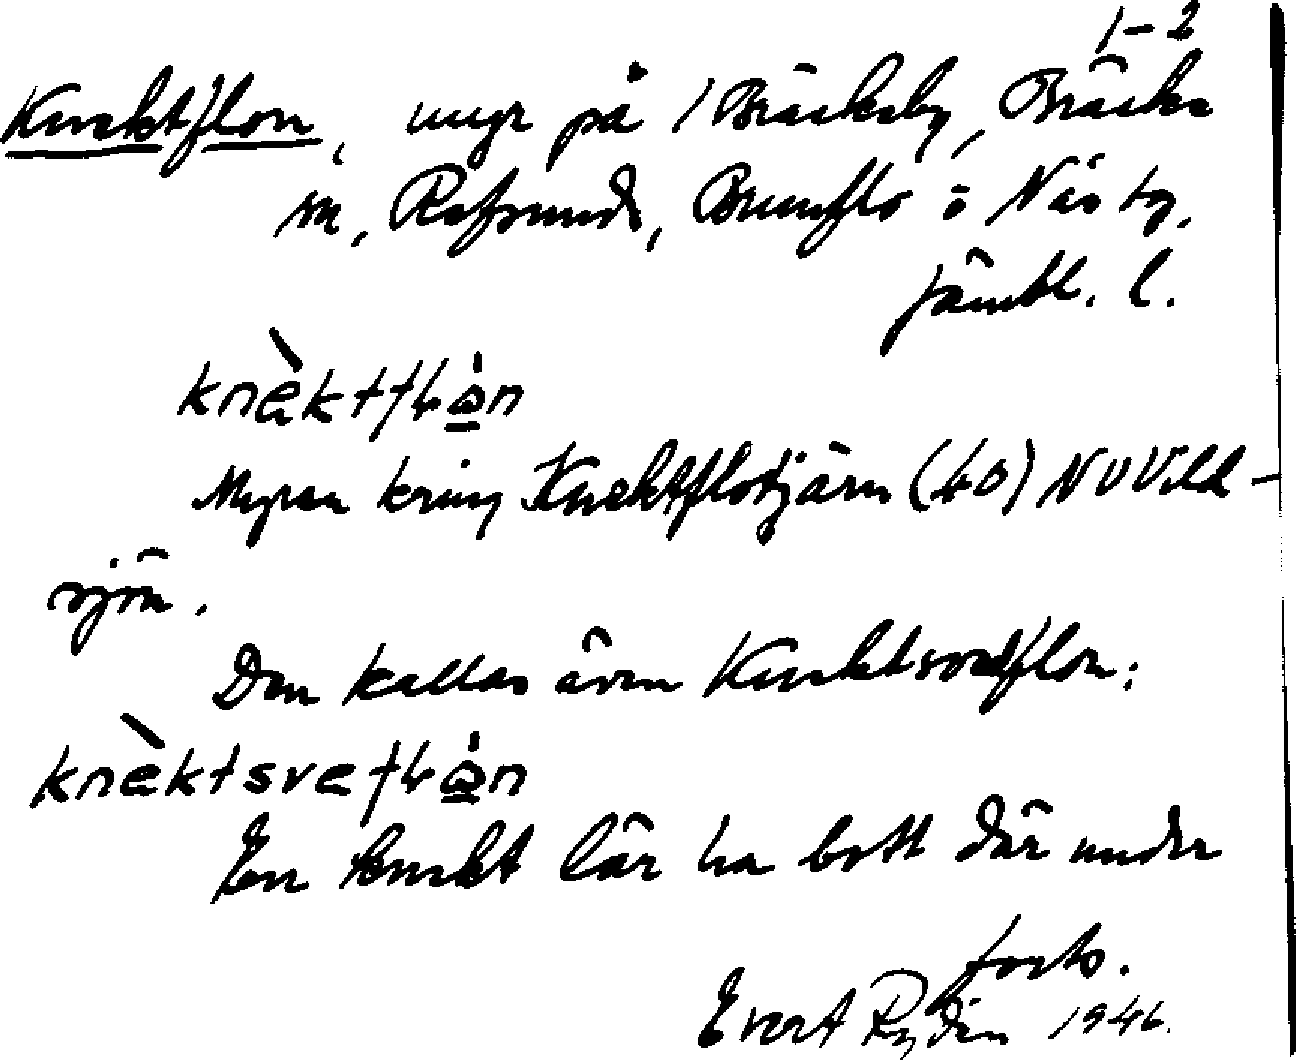 1-2
Knektflon, myr på 1 Bräckeby, Bräcke
sn, Refsund, Brunflo o Näs tg,
Jämtl. l.
knèktflån
Myren kring Knektflotjärn (40) NV Vill-
sjön.
Den kallas även Knektsvedflon:
knèktsveflån
En knekt lär ha bott där under
forts.
Evert Rydén 1946.